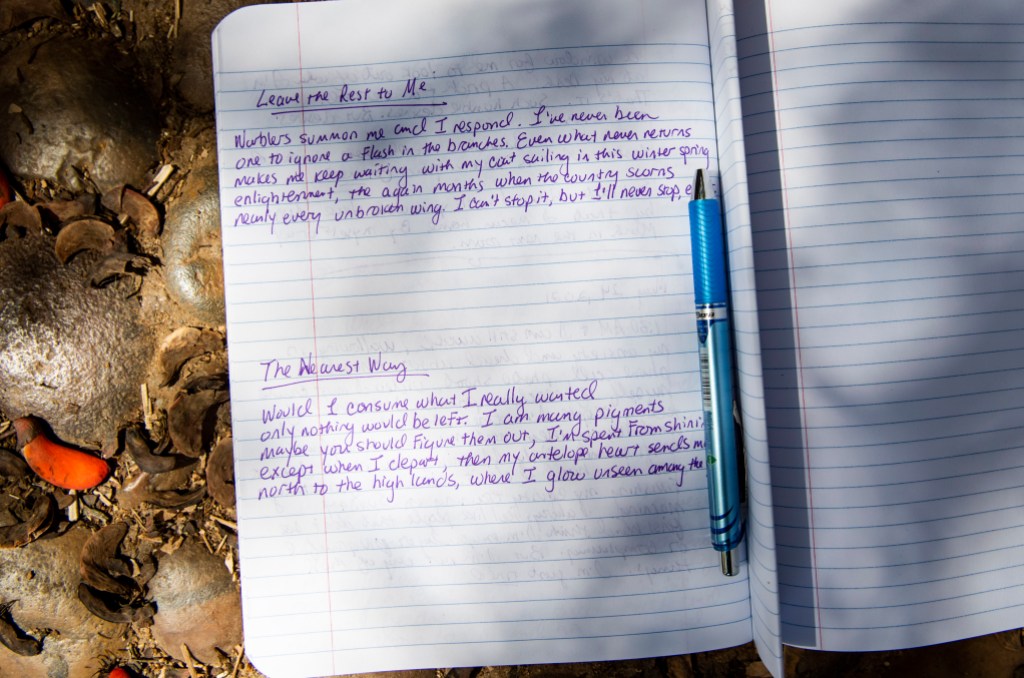 Leave the Rest to Me
Warblers summon me and I respond. I've never been
one to ignore a flash in the branches. Even what never returns
makes me keep waiting with my coat sailing in this winter spring
enlightenment, the again months when the country scorns
nearly every unbroken wing. I can't stop it, but I'll never stop,
The Nearest Way
Would I consume what I really wanted
only nothing would be left. I am many pigments
maybe you should figure them out, I'm spent from
except when I depart, then my antelope heart sends
north to the high lands, where I glow unseen among the